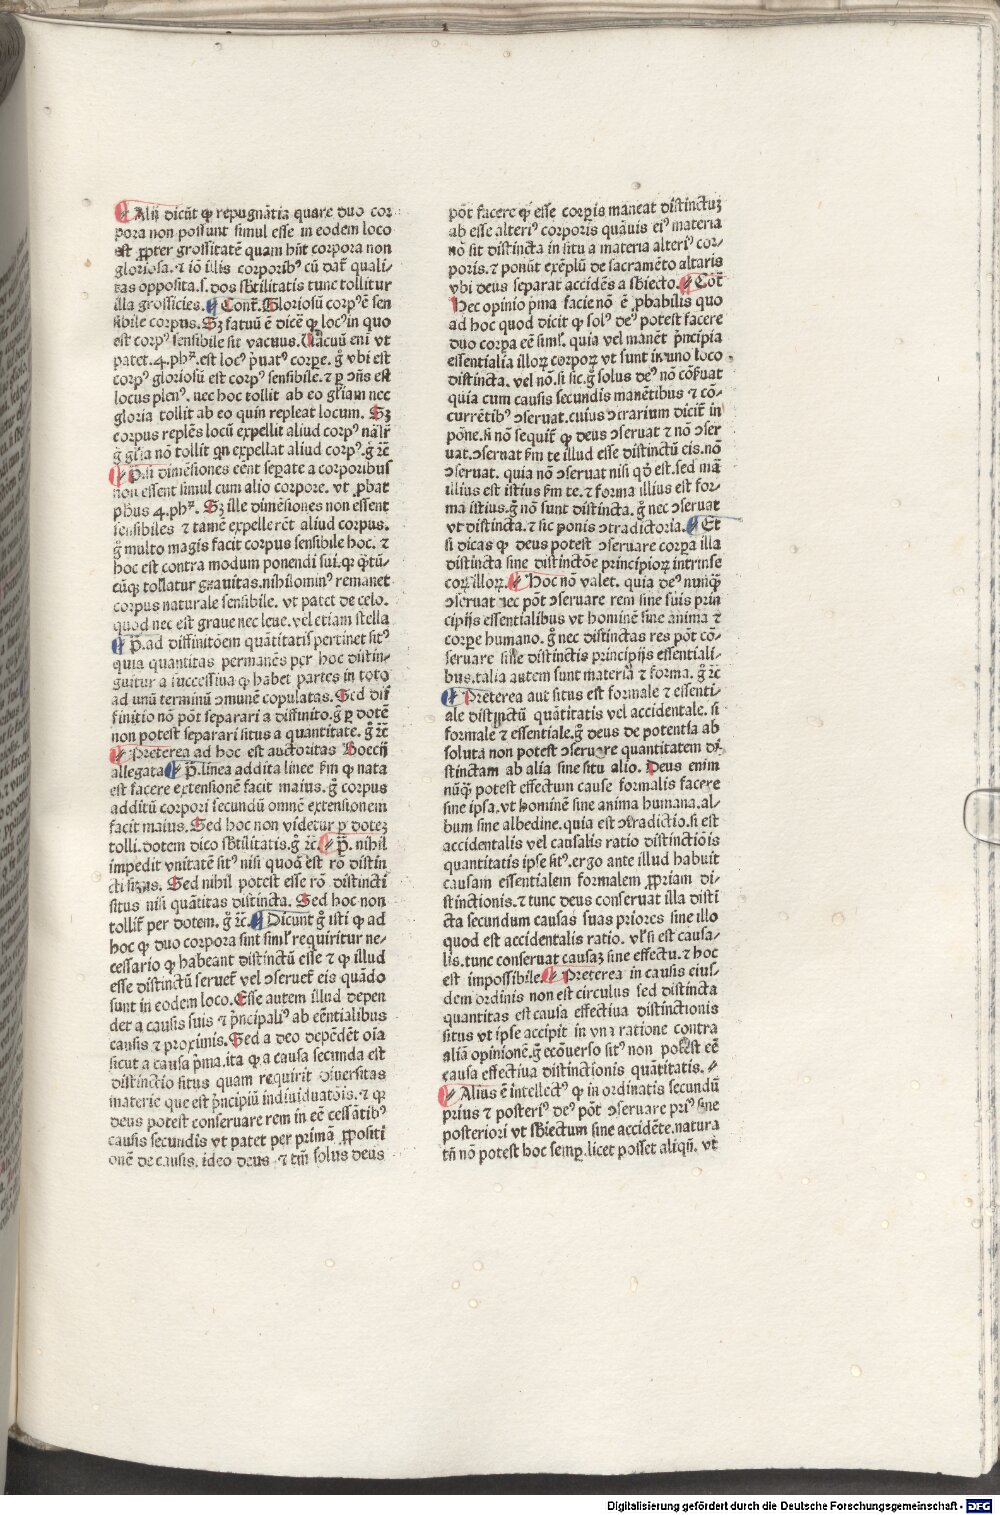 Alij dicūt ꝙ repugnātia quare duo cor
pora non possunt simul esse in eodem loco
est ꝓpter grossitatē quam hn̄t corpora non
gloriosa. ⁊ iō illis corporibꝰ cū dat̄ quali-
tas opposita. s. dos sb̄tilitatis tunc tollitur
illa grossicies. Cont̄. Gloriosū corpꝰ ē sen
sibile corpus. Sꝫ fatuū ē dicē ꝙ locꝰ in quo
est corpꝰ sensibile sit vacuus. Vacuū eni vt
patet. 4. phꝝ. est locꝰ p̄uatꝰ corpe. g̊ vbi est
corpꝰ gloriosū est corpꝰ sensibile. ⁊ ꝑ ↄn̄s est
locus plenꝰ. nec hoc tollit ab eo gl̄iam nec
gloria tollit ab eo quin repleat locum. Sꝫ
corpus replēs locū expellit aliud corpꝰ nal̄r
g̊ gl̄ia nō tollit qn̄ expellat aliud corpꝰ. g̊ ⁊c̄
P̄. si dimēsiones eēnt sepate a corporibus
non essent simul cum alio corpore. vt ꝓbat
phus 4. phꝝ. Sꝫ ille dimēsiones non essent
sensibiles ⁊ tamē expellerēt aliud corpus.
g̊ multo magis facit corpus sensibile hoc. ⁊
hoc est contra modum ponendi sui. qꝛ q̄tū-
cūqꝫ tollatur grauitas. nihilominꝰ remanet
corpus naturale sensibile. vt patet de celo.
quod nec est graue nec leue. vel etiam stella
P̄. ad diffinitōem quātitatis pertinet sitꝰ
quia quantitas permanēs per hoc distin-
guitur a successiua ꝙ habet partes in toto
ad unū terminū ↄmunē copulatas. Sed dif
finitio nō pōt separari a diffinito. g̊ ꝑ dotē
non potest separari situs a quantitate. g̊ ⁊c̄
Preterea ad hoc est auctoritas Boecij
allegata P̄. linea addita linee km̄ ꝙ nata
est facere extensionē facit maius. g̊ corpus
additū corpori secundū omnē extensionem
facit maius. Sed hoc non videtur ꝑ dotez
tolli. dotem dico sb̄tilitatis. g̊ ⁊c̄. P̄. nihil
impedit vnitatē sitꝰ nisi quod est rō distin
cti situs. Sed nihil potest esse rō distincti
situs nisi quātitas distincta. Sed hoc non
tollit̄ per dotem. g̊ ⁊c̄. Dicunt g̊ isti ꝙ ad
hoc ꝙ duo corpora sint siml̄ requiritur ne-
cessario ꝙ habeant distinctū esse ⁊ ꝙ illud
esse distinctū seruet̄ vel ↄseruet̄ eis quādo
sunt in eodem loco. Esse autem illud depen
det a causis suis ⁊ p̄ncipaliꝰ ab eēntialibus
causis ⁊ proximis. Sed a deo depēdēt oīa
sicut a causa p̄ma. ita ꝙ a causa secunda est
distinctio situs quam requirit diuersitas
materie que est p̄ncipiū indiuiduatōis. ⁊ qꝛ
deus potest conseruare rem in eē cessātibꝰ
causis secundis vt patet per primā ꝓpositi
onē de causis. ideo deus ⁊ tm̄ solus deus
pōt facere ꝙ esse corpis maneat distinctuꝫ
ab esse alteriꝰ corporis quāuis eiꝰ materia
nō sit distincta in situ a materia alteriꝰ cor-
poris. ⁊ ponūt exēplū de sacramēto altaris
vbi deus separat accidēs a sb̄iecto. Cōt̄
Hec opinio p̄ma facie nō ē ꝓbabilis quo
ad hoc quod dicit ꝙ solꝰ deꝰ potest facere
duo corpa eē siml̄. quia vel manēt p̄ncipia
essentialia illoꝝ corpoꝝ vt sunt in uno loco
distincta. vel nō. si sic. g̊ solus deꝰ nō cōs̄uat
quia cum causis secundis manētibus ⁊ cō-
currētibꝰ ↄseruat. cuius ↄtrarium dicit̄ in
pōne. si nō sequit̄ ꝙ deus ↄseruat ⁊ nō ↄser
uat. ↄseruat km̄ te illud esse distinctū eis. nō
ↄseruat. quia nō ↄseruat nisi qd̄ est. sed mā
illius est istius km̄ te. ⁊ forma illius est for-
ma istius. g̊ nō sunt distincta. g̊ nec ↄseruat
vt distincta. ⁊ sic ponis ↄtradictoria. Et
si dicas ꝙ deus potest ↄseruare corpa illa
distincta sine distinctōe principioꝝ intrinse
coꝝ illoꝝ. Hoc nō valet. quia deꝰ nunqꝫ̄
ↄseruat nec pōt ↄseruare rem sine suis prin
cipijs essentialibus vt hominē sine anima ⁊
corpe humano. g̊ nec distinctas res pōt cō-
seruare sine distinctis principijs essentiali-
bus. talia autem sunt materia ⁊ forma. g̊ ⁊c̄
Preterea aut situs est formale ⁊ essenti-
ale distinctū quātitatis vel accidentale. si
formale ⁊ essentiale. g̊ deus de potentia ab
soluta non potest ↄseruare quantitatem di-
stinctam ab alia sine situ alio. Deus enim
nūqꝫ̄ potest effectum cause formalis facere
sine ipsa. vt hominē sine anima humana. al-
bum sine albedine. quia est ↄtradictio. si est
accidentalis vel causalis ratio distinctiōis
quantitatis ipse sitꝰ. ergo ante illud habuit
causam essentialem formalem ꝓpriam di-
stinctionis. ⁊ tunc deus conseruat illa disti
cta secundum causas suas priores sine illo
quod est accidentalis ratio. vl̄ si est causa-
lis. tunc conseruat causaꝫ sine effectu. ⁊ hoc
est impossibile. Preterea in causis eius-
dem ordinis non est circulus sed distincta
quantitas est causa effectiua distinctionis
situs vt ipse accipit in vna ratione contra
aliā opinionē. g̊ ecōuerso sitꝰ non potest eē
causa effectiua distinctionis quātitatis.
Alius ē intellectꝰ ꝙ in ordinatis secundū
prius ⁊ posteriꝰ deꝰ pōt ↄseruare priꝰ sine
posteriori vt sb̄iectum sine accidēte. natura
tn̄ nō potest hoc semp. licet posset aliqn̄. vt
Digitalisierung gefördert durch die Deutsche Forschungsgemeinschaft - DFG